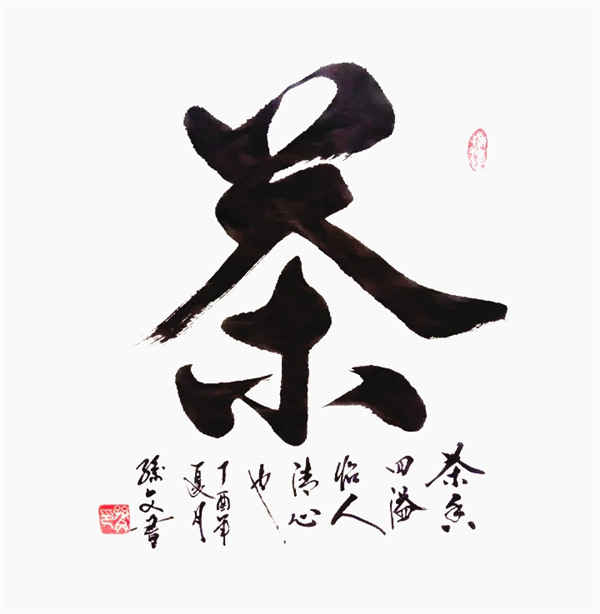 茶
茶香
四溢
怡人
清心
也
丁酉年
夏月
孙文書